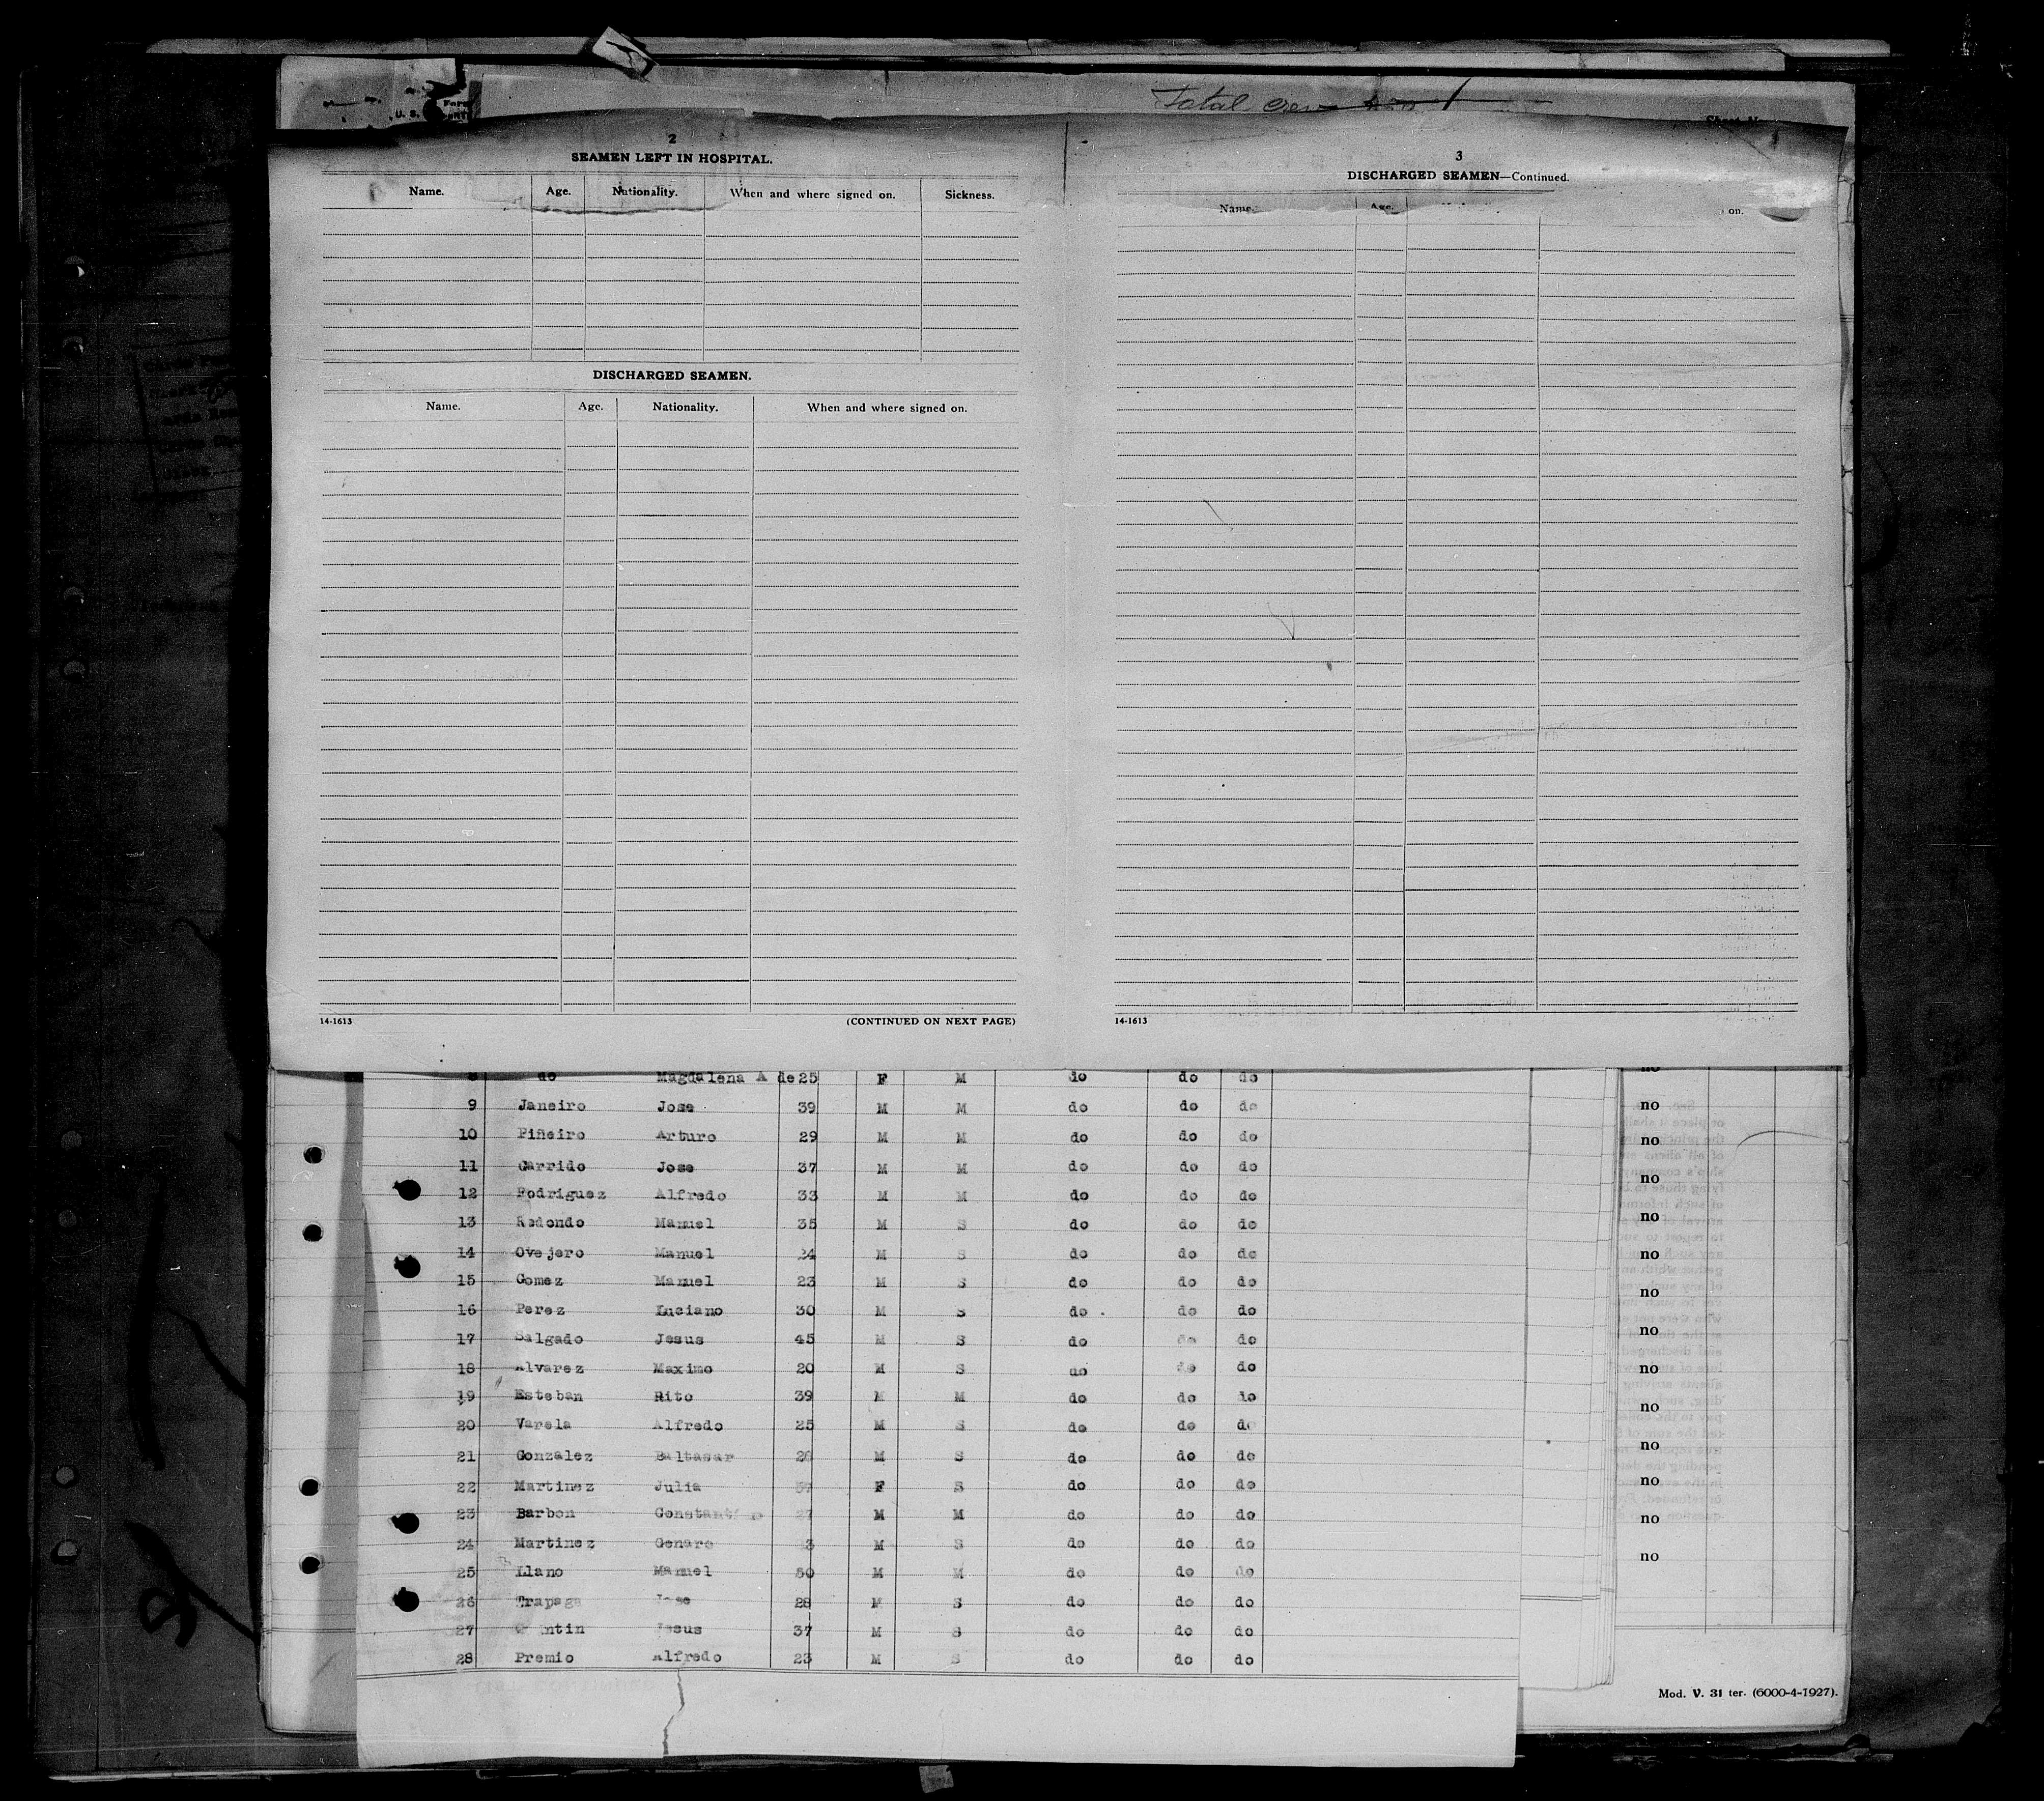 Total crew
U. S.
2
SEAMEN LEFT IN HOSPITAL.
Name. Age. Nationality. When and where signed on. Sickness.
DISCHARGED SEAMEN.
Name. Age. Nationality. When and where signed on.
14-1613 (CONTINUED ON NEXT PAGE)
3
DISCHARGED SEAMEN—Continued.
Name. Age. on.
14-1613
8 do Magdalena A de 25 F M do do do no
9 Janeiro Jose 39 M M do do do no
10 Piñeiro Arturo 29 M M do do do no
11 Garrido Jose 37 M M do do do no
12 Rodriguez Alfredo 33 M M do do do
13 Redondo Manuel 35 M S do do do no
14 Ovejero Manuel 24 M S do do do no
15 Gomez Manuel 23 M S do do do no
16 Perez Luciano 30 M S do do do
17 Salgado Jesus 45 M S do do do no
18 Alvarez Maximo 20 M S do do do no
19 Esteban Rito 39 M M do do do no
20 Varela Alfredo 25 M S do do do
21 Gonzalez Baltasar M S do do do no
22 Martinez Julia F S do do do no
23 Barbon 27 M M do do do no
24 Martinez Genaro M S do do do no
25 Llano Manuel 50 M M do do do
26 Trapaga Jose 28 M S do do do
27 Jesus 37 M S do do do
28 Premio Alfredo 23 M S do do do
Mod. V. 31 ter. (6000-4-1927).